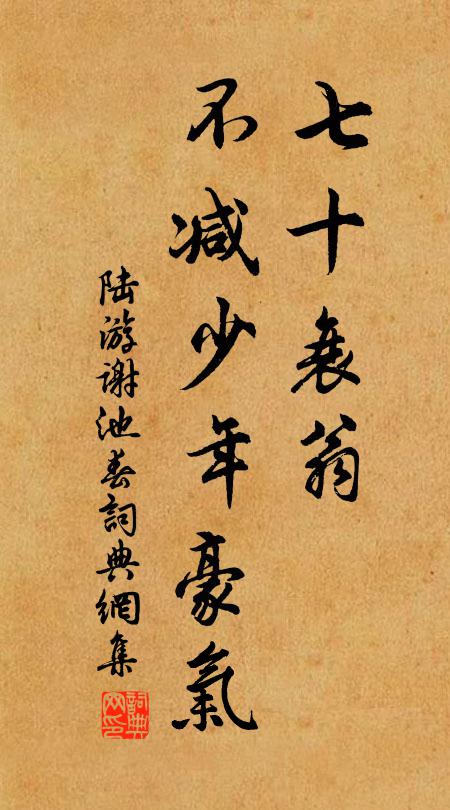 七十衰翁
不减少年豪氣
陆游谢池春詞典網集
詞典网印